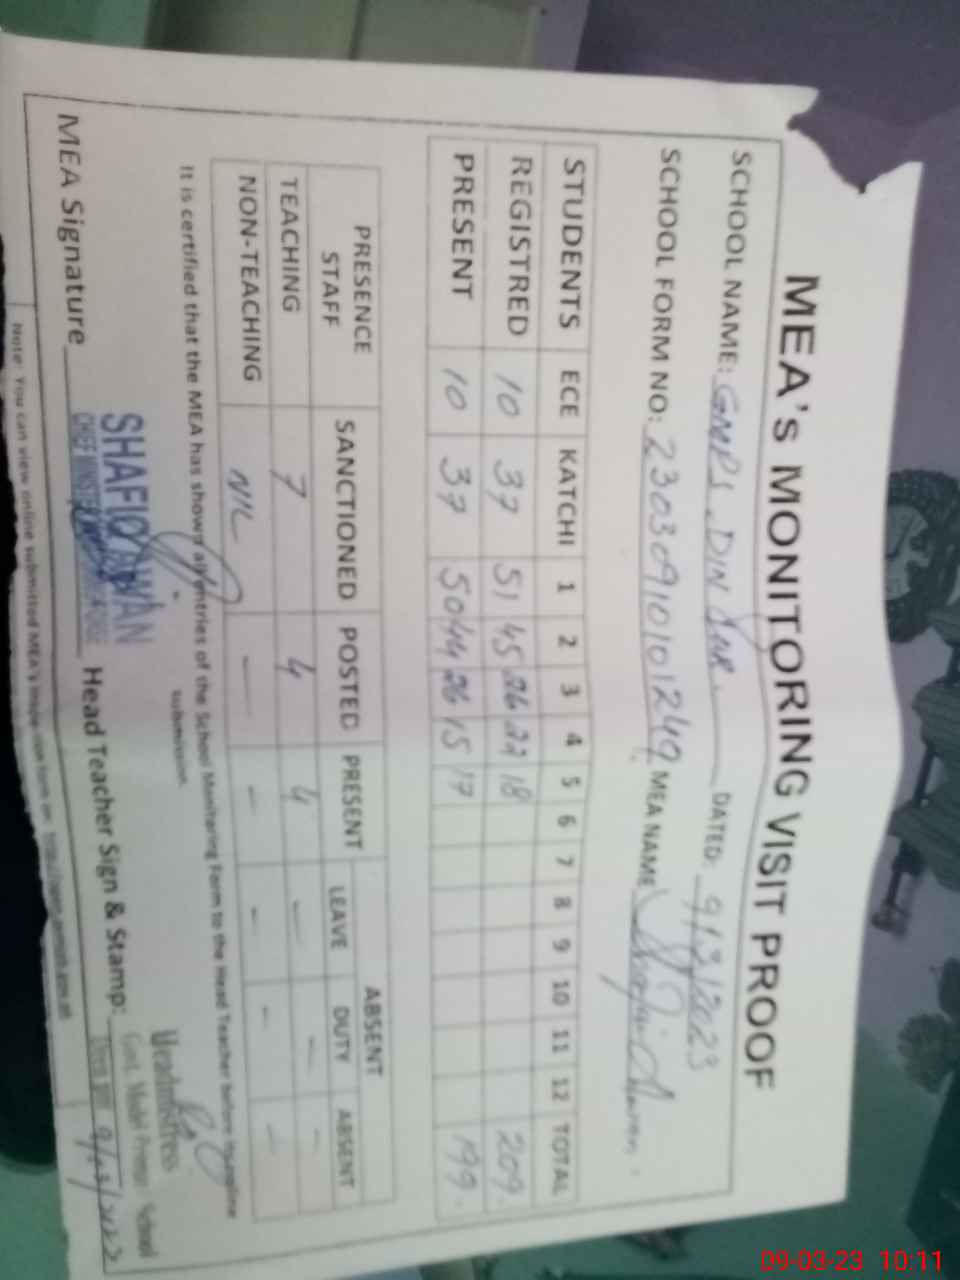 MEA's MONITORING VISIT PROOF
SCHOOL NAME: GMPS DIN DATED: 9/3/2023
SCHOOL FORM NO: 23030910101249 MEA NAME Shafiq Awan
STUDENTS ECE KATCHI 1 2 3 4 5 6 7 8 9 10 11 12 TOTAL
REGISTRED 10 37 51 45 26 22 18 209
PRESENT 10 37 50 44 26 15 17 199
PRESENCE STAFF SANCTIONED POSTED PRESENT ABSENT
LEAVE DUTY ABSENT
TEACHING 7 4 4 – – –
NON-TEACHING NIL – – – – –
It is certified that the MEA has shown all entries of the School Monitoring Form to the Head Teacher before its online
submission.
MEA Signature Head Teacher Sign & Stamp:
SHAFIQ AWAN
Headmistress
Govt. Model Primary School
Note: You can view online submitted MEA's
09-03-23 10:11